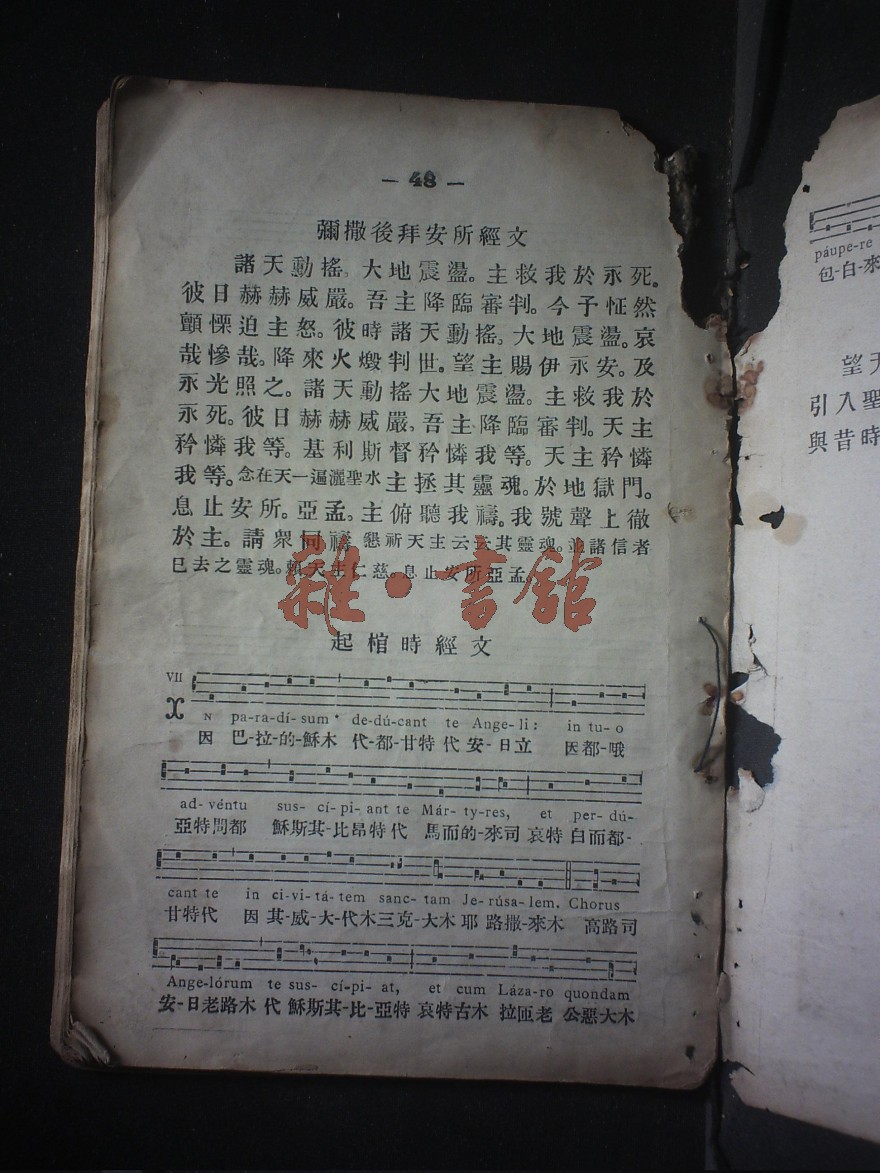 — 48 —
彌撒後拜安所經文
諸天動搖。大地震盪。主救我於永死。
彼日赫赫威嚴。吾主降臨審判。今予怔然
顫慄迫主怒。彼時諸天動搖。大地震盪。哀
哉慘哉。降來火燬判世。望主賜伊永安。及
永光照之。諸天動搖大地震盪。主救我於
永死。彼日赫赫威嚴。吾主降臨審判。天主
矜憐我等。基利斯督矜憐我等。天主矜憐
我等。念在天一遍灑聖水主拯其靈魂。於地獄門。
息止安所。亞孟。主俯聽我禱。我號聲上徹
於主。請眾同禱 懇祈天主云去其靈魂。並諸信者
巳去之靈魂。賴天主仁慈。息止安所亞孟。
雜·書館
起棺時經文
VII
IN pa-ra-dí-sum * de-dú-cant te Ange-li: in tu-o
因 巴-拉-的-穌木 代-都-甘特代 安-日立 因都-哦
ad-véntu sus-cí-pi-ant te Már-ty-res, et per-dú-
亞特問都 穌斯其-比昂特代 馬而的-來司 哀特白而都-
cant te in ci-vi-tá-tem sanc-tam Je-rúsa-lem. Chorus
甘特代 因 其-威-大-代木三克-大木耶 路撒-來木 高路司
Ange-lórum te sus-cí-pi-at, et cum Láza-ro quondam
安-日老路木 代 穌斯其-比-亞特哀特古木 拉匝老 公惡大木
páupe-re
包-白-來
望天
引入聖
與昔時